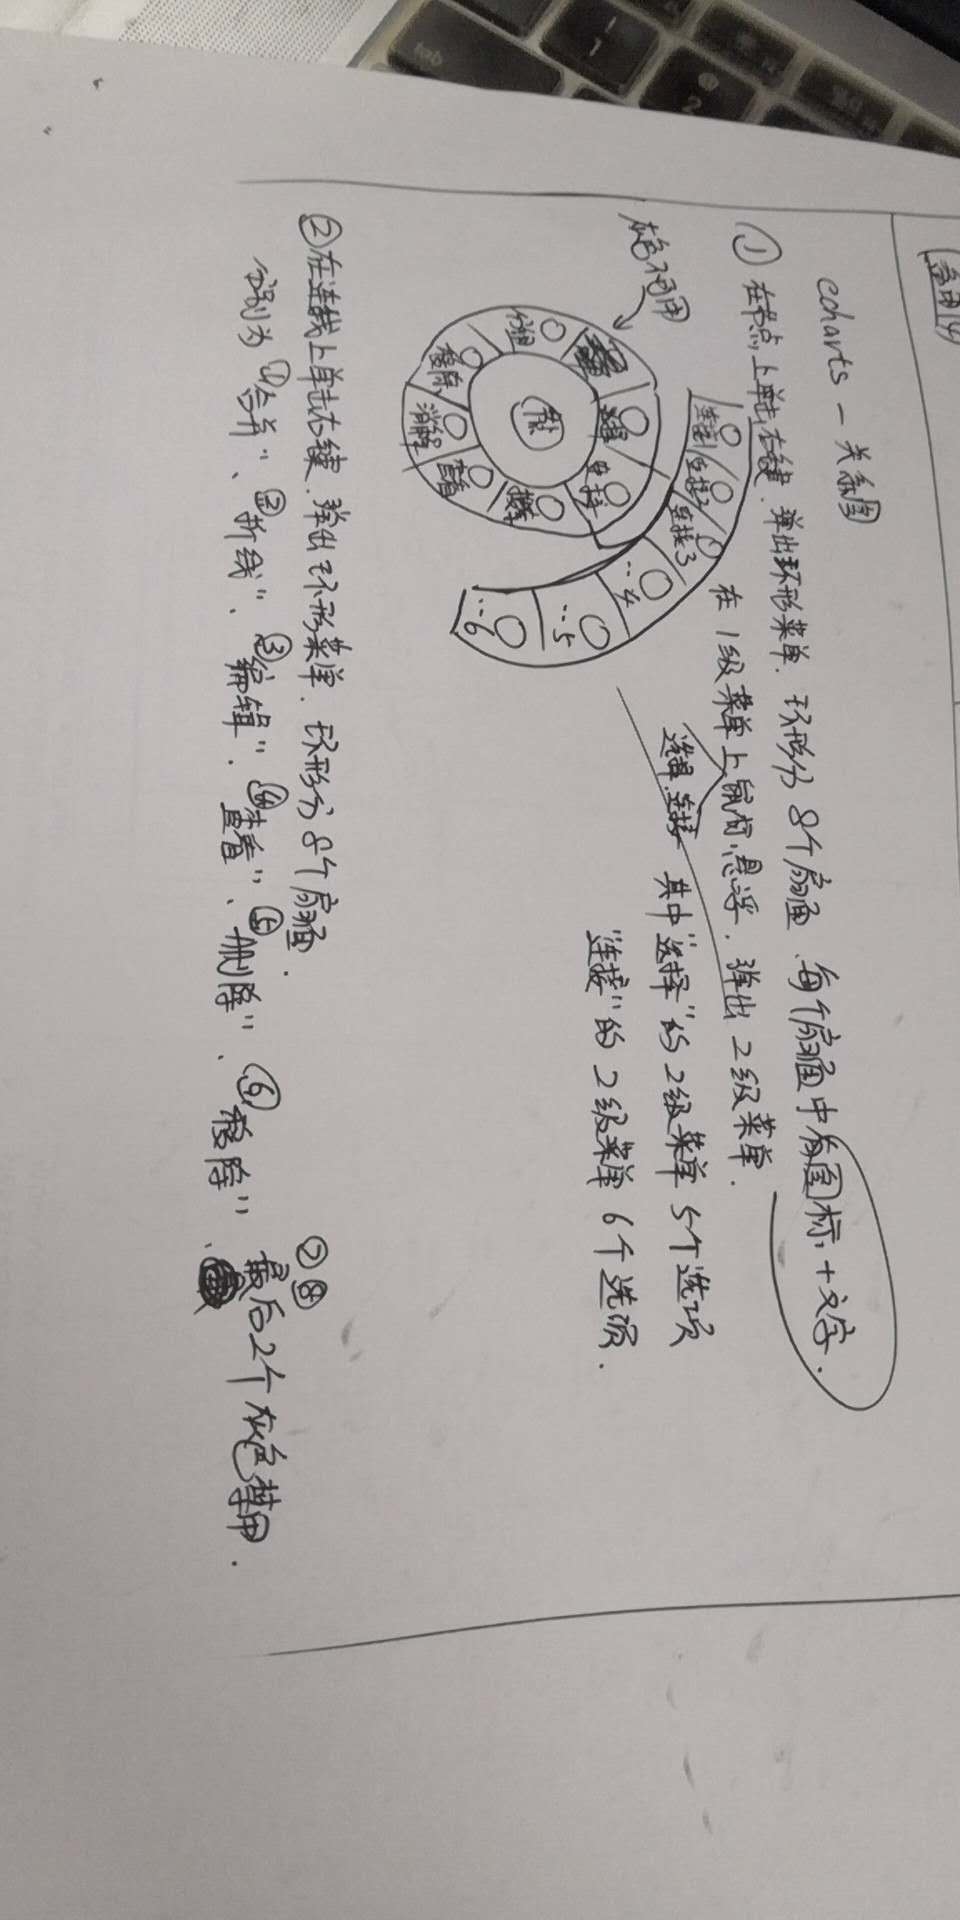 备用(4)
echarts - 关系图
① 在节点上单击右键、弹出环形菜单. 环形分 8个扇面、每个扇面中有图标+文字.
在1级菜单上鼠标悬浮. 弹出2级菜单.
选择 连接
其中"选择"的2级菜单5个选项
"连接"的2级菜单6个选项.
灰色不可用
连接1
连接2
连接3
..4
..5
..6
选择
连接
搜索
查看
消解
移除
分组
节点
②在连线上单击右键、弹出环形菜单. 环形分8个扇面.
分别为 ①合并"、②折线"、③编辑"、④查看"、⑤删除"、⑥移除"、
⑦ ⑧
最后2个灰色禁用.